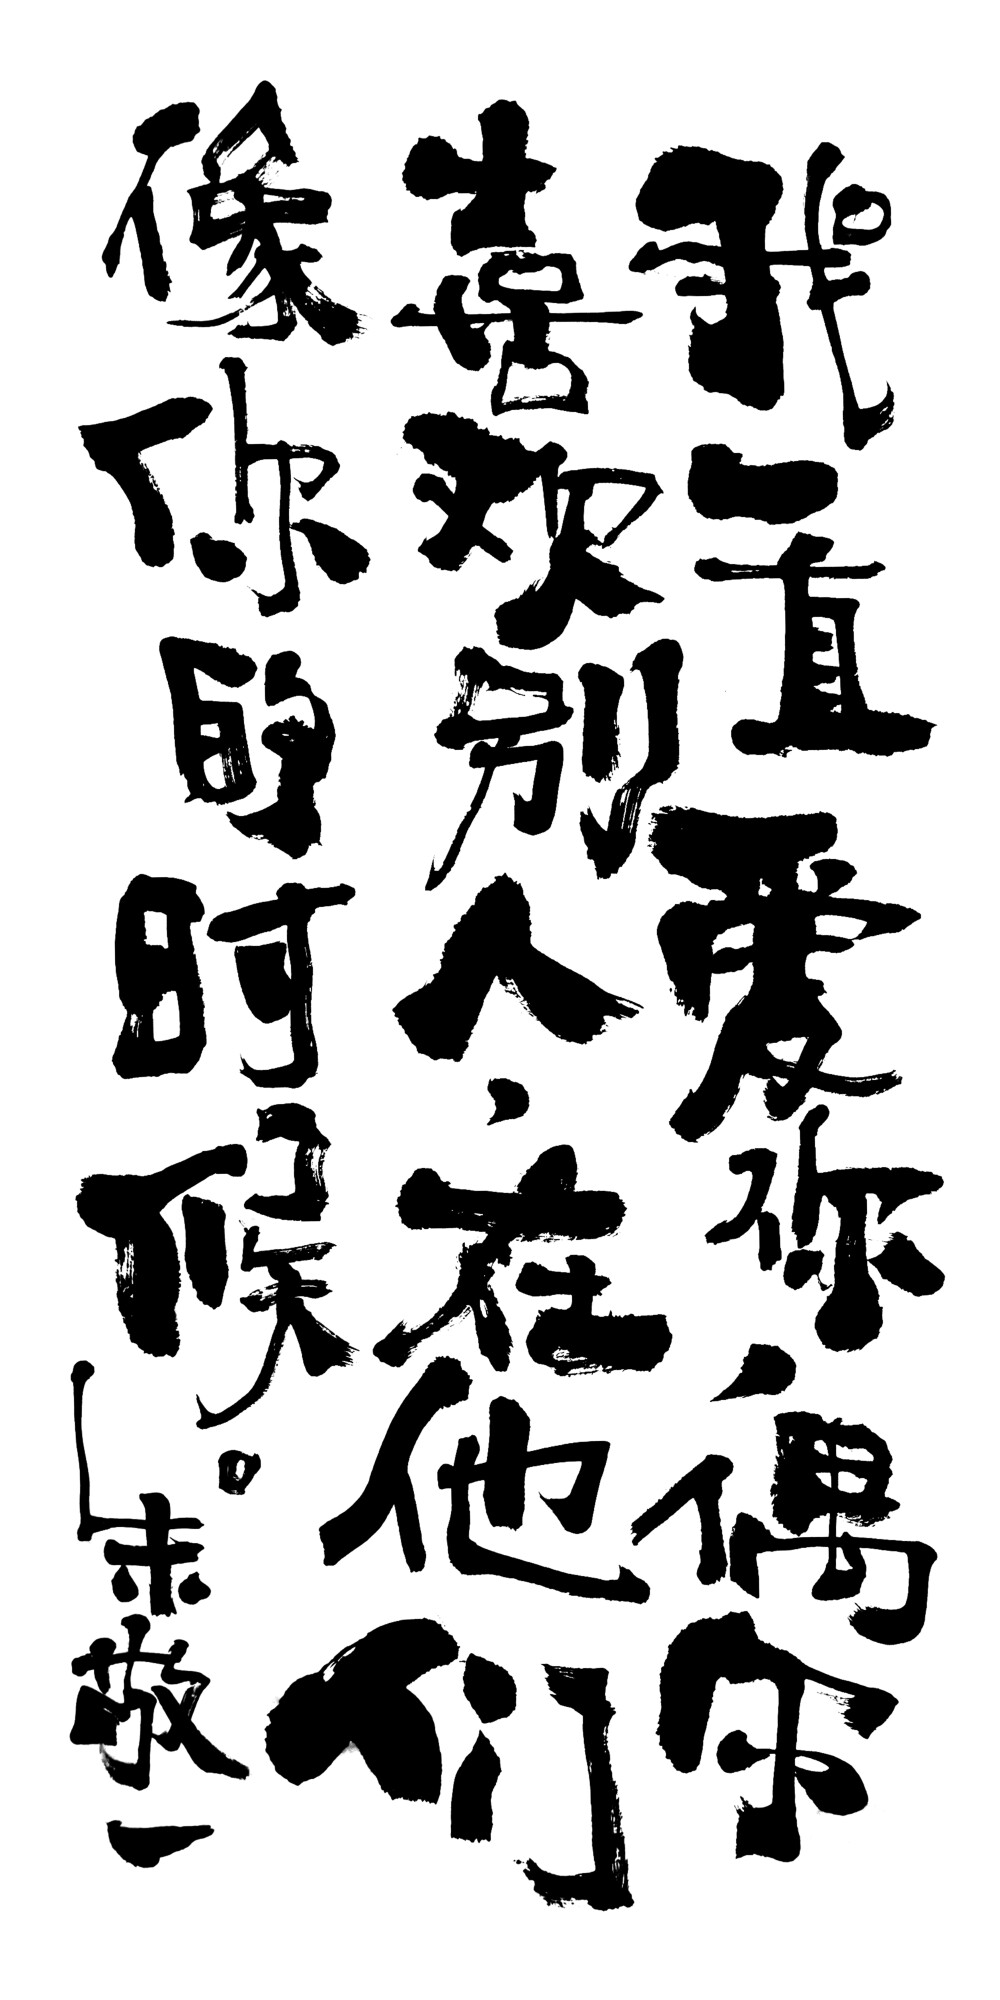 我一直爱你，偶尔
喜欢别人，在他们
像你的时候。
朱敬一